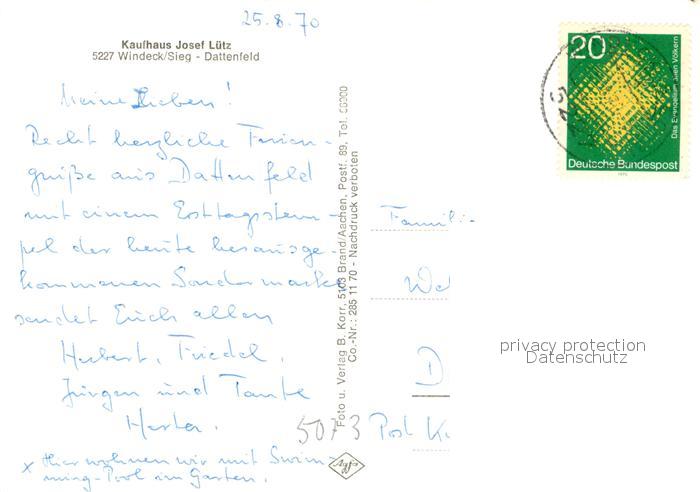 25.8.70
Kaufhaus Josef Lütz
5227 Windeck/Sieg - Dattenfeld
Meine Lieben!
Recht herzliche Ferien-
grüße aus Dattenfeld
mit einem Ersttagsstem-
pel der heute herausge-
kommenen Sondermarke
sendet Euch allen
Herbert, Friedel,
Jürgen und Tante
Herta.
x Hier wohnen wir mit Swim-
ming-Pool im Garten.
Foto u. Verlag B. Korr, 5103 Brand/Aachen, Postf. 89, Tel.
Co.-Nr.: 285 11 70 - Nachdruck verboten
Agfa
5073
20
Das Evangelium den Völkern
Deutsche Bundespost
1970
Famili
D
Post
privacy protection
Datenschutz